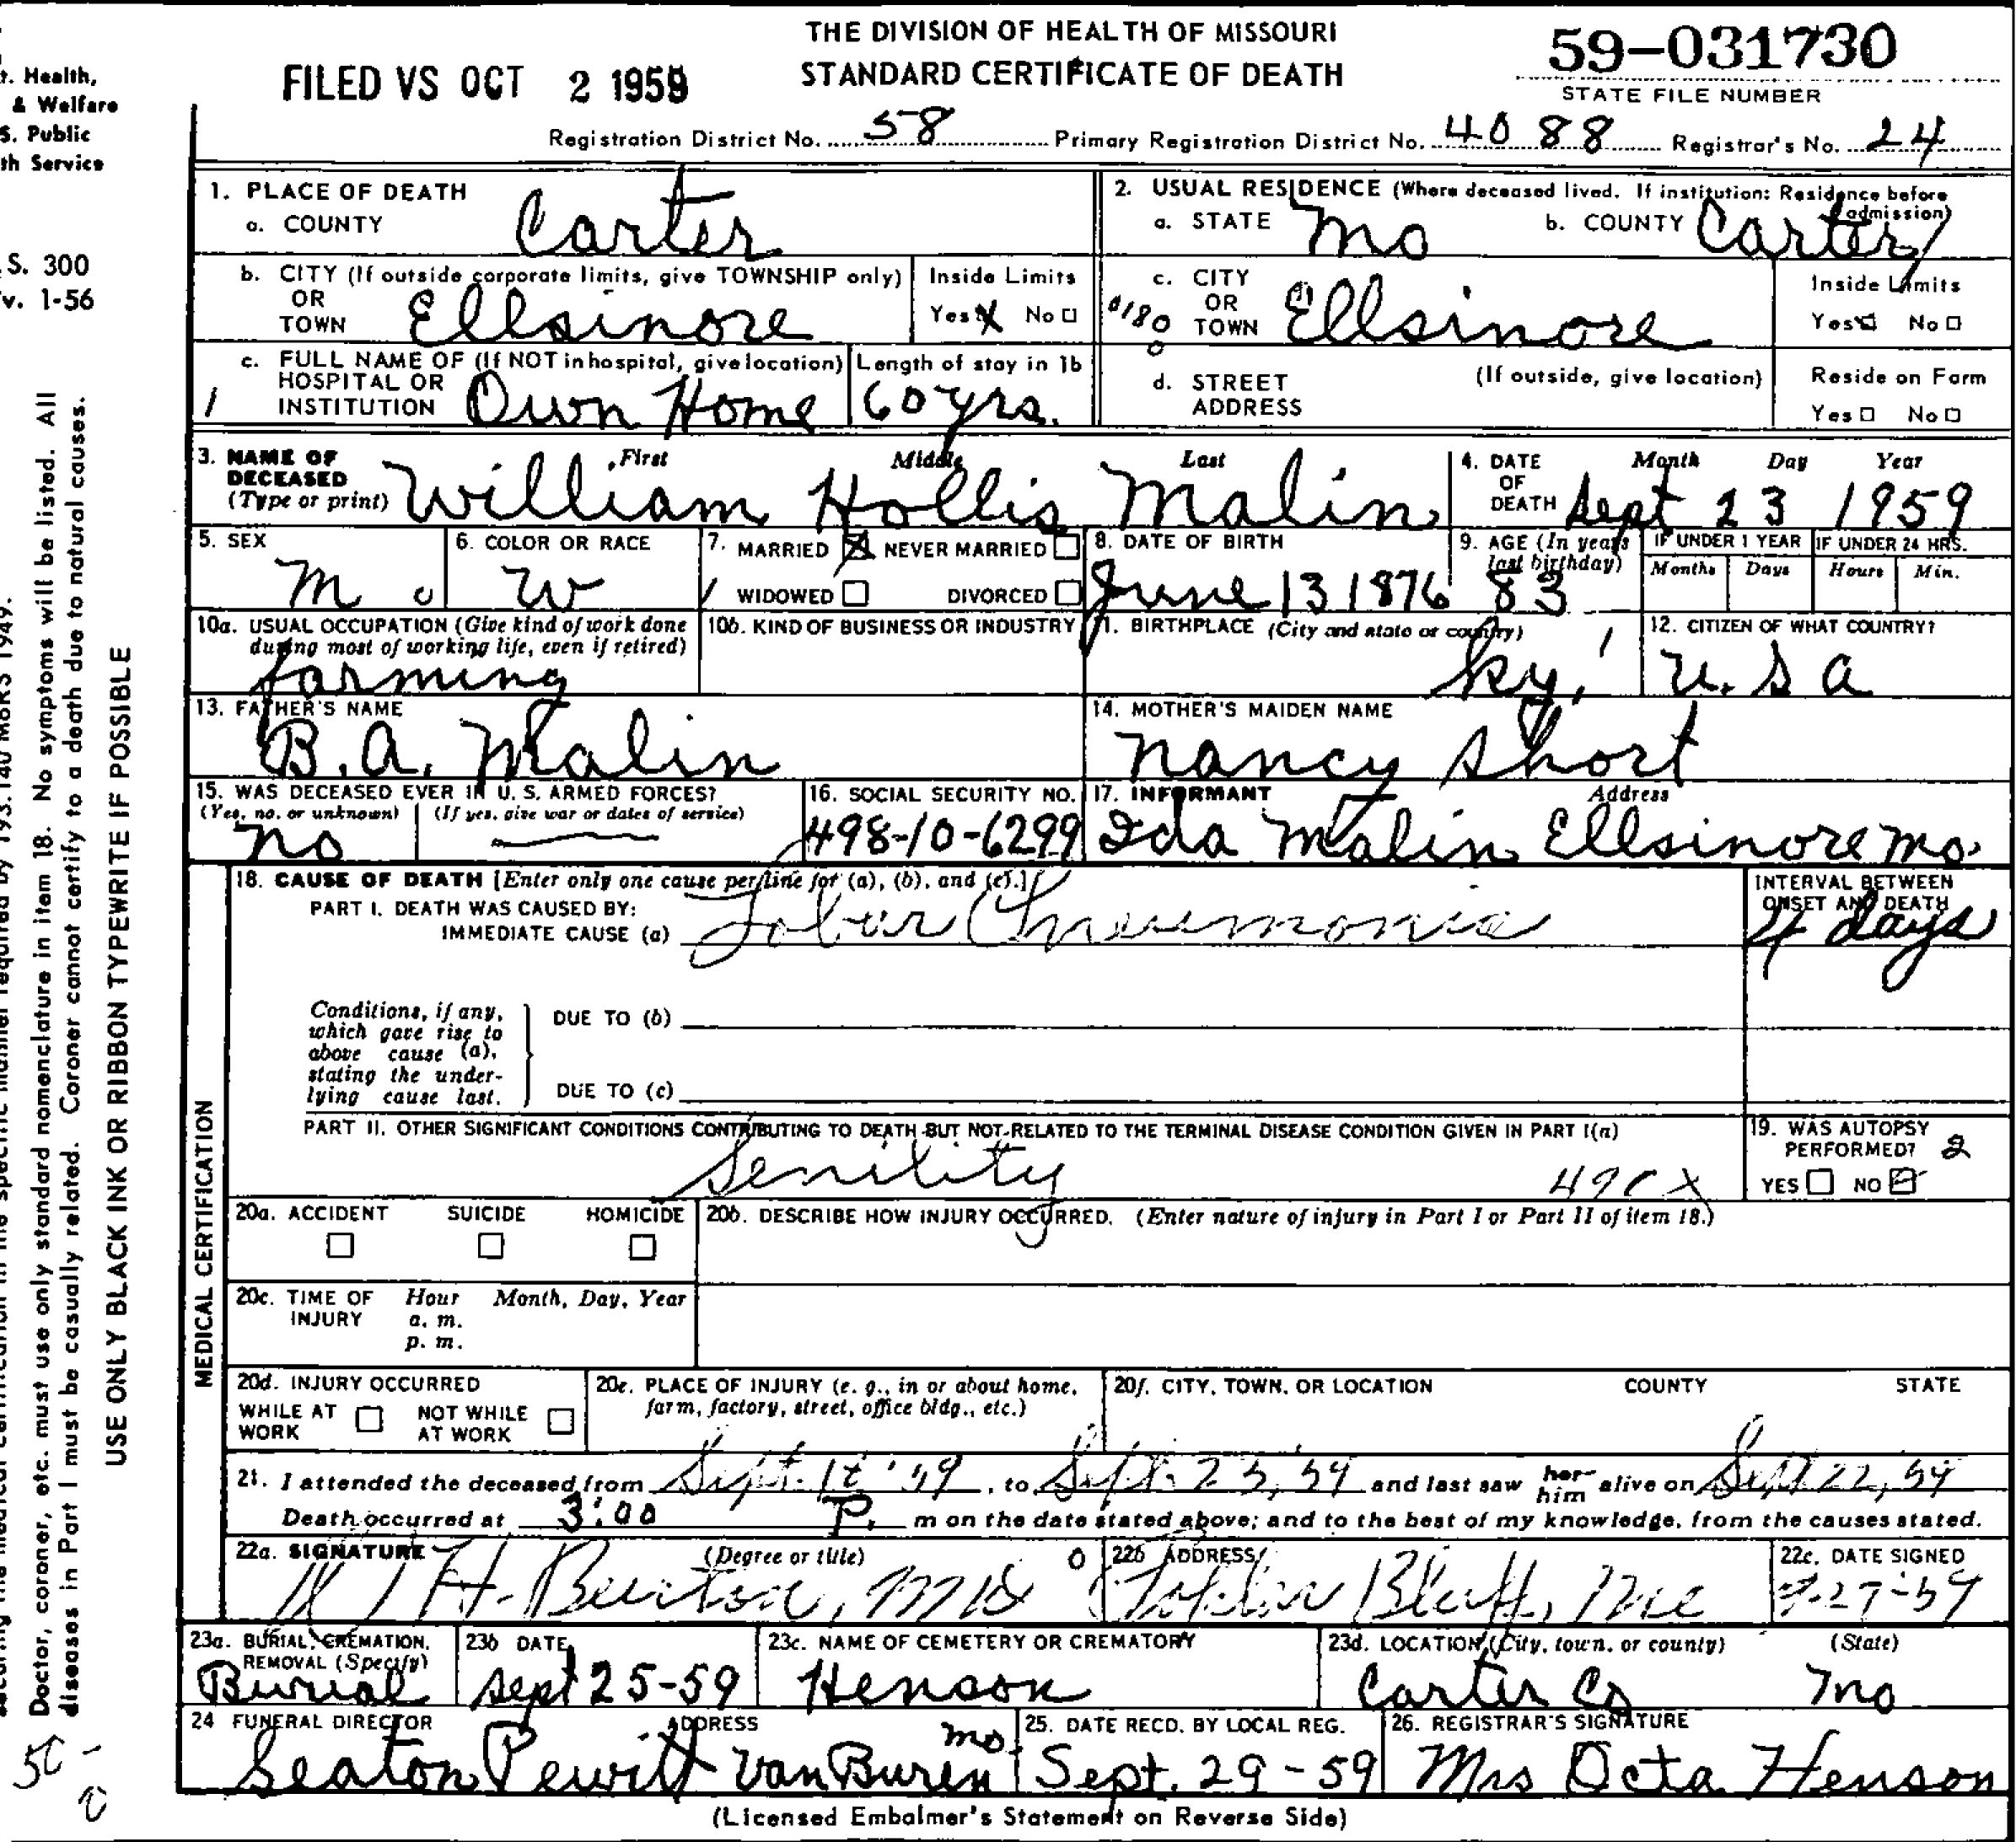 THE DIVISION OF HEALTH OF MISSOURI
STANDARD CERTIFICATE OF DEATH
FILED VS OCT 2 1959
59-031730
STATE FILE NUMBER
Registration District No. 58 Primary Registration District No. 4088 Registrar's No. 24
t. Health,
& Welfare
S. Public
th Service
S. 300
v. 1-56
1. PLACE OF DEATH
a. COUNTY Carter
2. USUAL RESIDENCE (Where deceased lived. If institution: Residence before admission)
a. STATE Mo b. COUNTY Carter
b. CITY (If outside corporate limits, give TOWNSHIP only) OR TOWN Ellsinore
Inside Limits Yes X No
c. CITY OR TOWN Ellsinore
0180
0
Inside Limits Yes No
c. FULL NAME OF (If NOT in hospital, give location) HOSPITAL OR INSTITUTION Own Home
1
Length of stay in 1b 60 yrs.
d. STREET ADDRESS (If outside, give location)
Reside on Farm Yes No
3. NAME OF DECEASED (Type or print) First Middle Last
William Hollis Malin
4. DATE OF DEATH Month Day Year
Sept 23 1959
5. SEX M
6. COLOR OR RACE W
7. MARRIED X NEVER MARRIED
WIDOWED DIVORCED
8. DATE OF BIRTH June 13 1876
9. AGE (In years last birthday) 83
IF UNDER 1 YEAR Months Days
IF UNDER 24 HRS. Hours Min.
10a. USUAL OCCUPATION (Give kind of work done during most of working life, even if retired)
farming
10b. KIND OF BUSINESS OR INDUSTRY
11. BIRTHPLACE (City and state or country) Ky.
12. CITIZEN OF WHAT COUNTRY? U.S a
13. FATHER'S NAME B.A. Malin
14. MOTHER'S MAIDEN NAME Nancy Short
15. WAS DECEASED EVER IN U. S. ARMED FORCES?
(Yes, no, or unknown) (If yes, give war or dates of service)
no
16. SOCIAL SECURITY NO. 498-10-6299
17. INFORMANT Address
Ida Malin Ellsinore Mo.
MEDICAL CERTIFICATION
18. CAUSE OF DEATH [Enter only one cause per line for (a), (b), and (c).]
PART I. DEATH WAS CAUSED BY:
IMMEDIATE CAUSE (a) Lobar Pneumonia
INTERVAL BETWEEN ONSET AND DEATH
4 days
Conditions, if any, which gave rise to above cause (a), stating the underlying cause last.
DUE TO (b)
DUE TO (c)
PART II. OTHER SIGNIFICANT CONDITIONS CONTRIBUTING TO DEATH BUT NOT RELATED TO THE TERMINAL DISEASE CONDITION GIVEN IN PART I(a)
Senility
19. WAS AUTOPSY PERFORMED? 2
YES NO
20a. ACCIDENT SUICIDE HOMICIDE
20b. DESCRIBE HOW INJURY OCCURRED. (Enter nature of injury in Part I or Part II of item 18.)
20c. TIME OF INJURY Hour a. m. p. m. Month, Day, Year
20d. INJURY OCCURRED
WHILE AT WORK NOT WHILE AT WORK
20e. PLACE OF INJURY (e. g., in or about home, farm, factory, street, office bldg., etc.)
20f. CITY, TOWN, OR LOCATION COUNTY STATE
21. I attended the deceased from Sept. to Sept. 23, 59 and last saw her him alive on Sept 22, 59
Death occurred at 3:00 P. m on the date stated above; and to the best of my knowledge, from the causes stated.
22a. SIGNATURE (Degree or title)
H. Burton, MD
22b ADDRESS Poplar Bluff, Mo
22c. DATE SIGNED 9-27-59
23a. BURIAL, CREMATION, REMOVAL (Specify) Burial
23b DATE Sept 25-59
23c. NAME OF CEMETERY OR CREMATORY Henson
23d. LOCATION (City, town, or county) (State)
Carter Co Mo
24 FUNERAL DIRECTOR ADDRESS
Seaton Pewitt Van Buren Mo.
25. DATE RECD. BY LOCAL REG. Sept. 29-59
26. REGISTRAR'S SIGNATURE Mrs Octa Henson
(Licensed Embalmer's Statement on Reverse Side)
USE ONLY BLACK INK OR RIBBON TYPEWRITE IF POSSIBLE
Doctor, coroner, etc. must use only standard nomenclature in item 18. No symptoms will be listed. All
diseases in Part I must be casually related. Coroner cannot certify to a death due to natural causes.